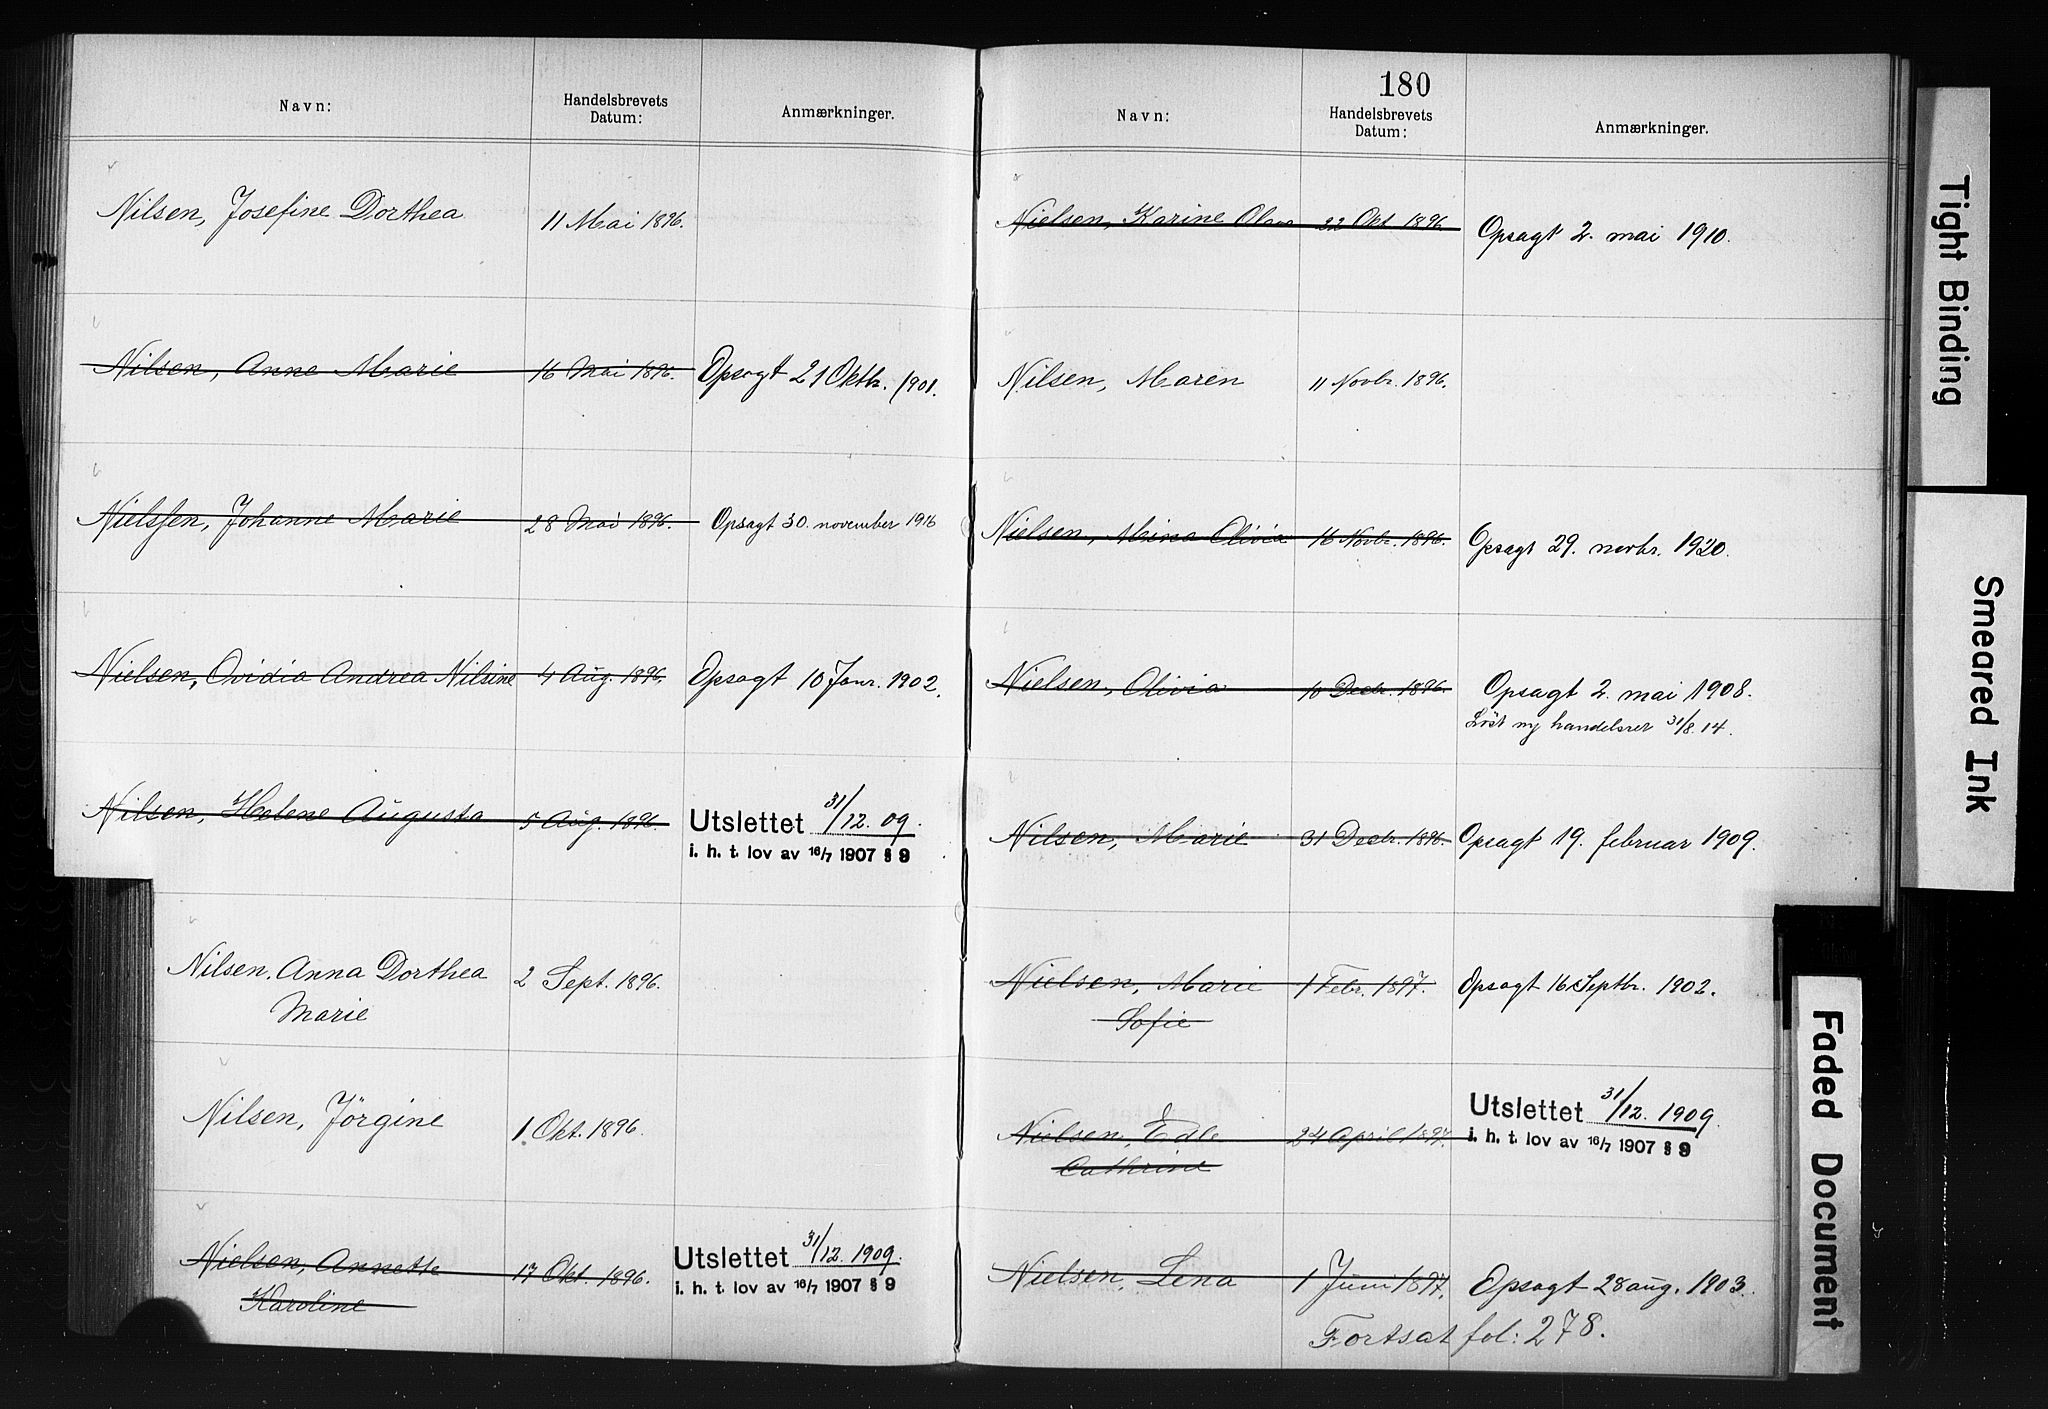 Navn:
Handelsbrevets
Datum:
Anmærkninger.
Nilsen, Josefine Dorthea 11 Mai 1896.
Nilsen, Anne Marie 16 Mai 1896. Opsagt 21 Oktb. 1901.
Nielssen, Johanne Marie 28 Mai 1896. Opsagt 30. november 1916
Nielsen, Ovidia Andrea Nilsine 4 Aug. 1896. Opsagt 10 Janr. 1902.
Nilsen, Helene Augusta 5 Aug. 1896. Utslettet 31/12. 09.
i. h. t. lov av 16/7 1907 § 9
Nilsen, Anna Dorthea 2 Sept. 1896.
Marie
Nilsen, Jörgine 1 Okt. 1896.
Nielsen, Annette 17 Okt. 1896. Utslettet 31/12. 1909.
Karoline i. h. t. lov av 16/7 1907 § 9
180
Navn:
Handelsbrevets
Datum:
Anmærkninger.
Nielsen, Karine Olava 22 Okt 1896. Opsagt 2. mai 1910.
Nilsen, Maren 11 Novbr. 1896.
Nielsen, Mina Olivia 16 Novbr. 1896. Opsagt 29. novbr. 1920.
Nielsen, Olivia 10 Decbr. 1896. Opsagt 2. mai 1908.
Löst ny handelsret 31/8. 14.
Nilsen, Marie 31 Decbr. 1896. Opsagt 19. februar 1909.
Nielsen, Marie 1 Febr. 1897. Opsagt 16 Septbr. 1902.
Sofie
Nielsen, Edle 24 April 1897. Utslettet 31/12. 1909.
Cathrine i. h. t. lov av 16/7 1907 § 9
Nielsen, Lena 1 Juni 1897. Opsagt 28 aug. 1903.
Fortsat fol: 278.
Tight Binding
Smeared Ink
Faded Document